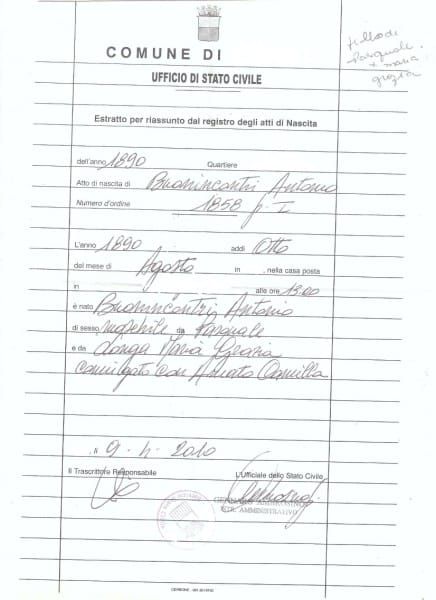 fillo di
Pasquale
+ maria
grazia
COMUNE DI
UFFICIO DI STATO CIVILE
Estratto per riassunto dal registro degli atti di Nascita
dell'anno 1890 Quartiere
Atto di nascita di Buonincontri Antonio
Numero d'ordine 1858 p. I
L'anno 1890 addì Otto
del mese di Agosto in , nella casa posta
in alle ore 13.00
è nato Buonincontri Antonio
di sesso maschile da Pasquale
e da Longa Maria Grazia
coniugato con Amato Camilla
lì 9-4-2010
Il Trascrittore Responsabile L'Ufficiale dello Stato Civile
GENNARO AMBROSINO
ISTR. AMMINISTRATIVO